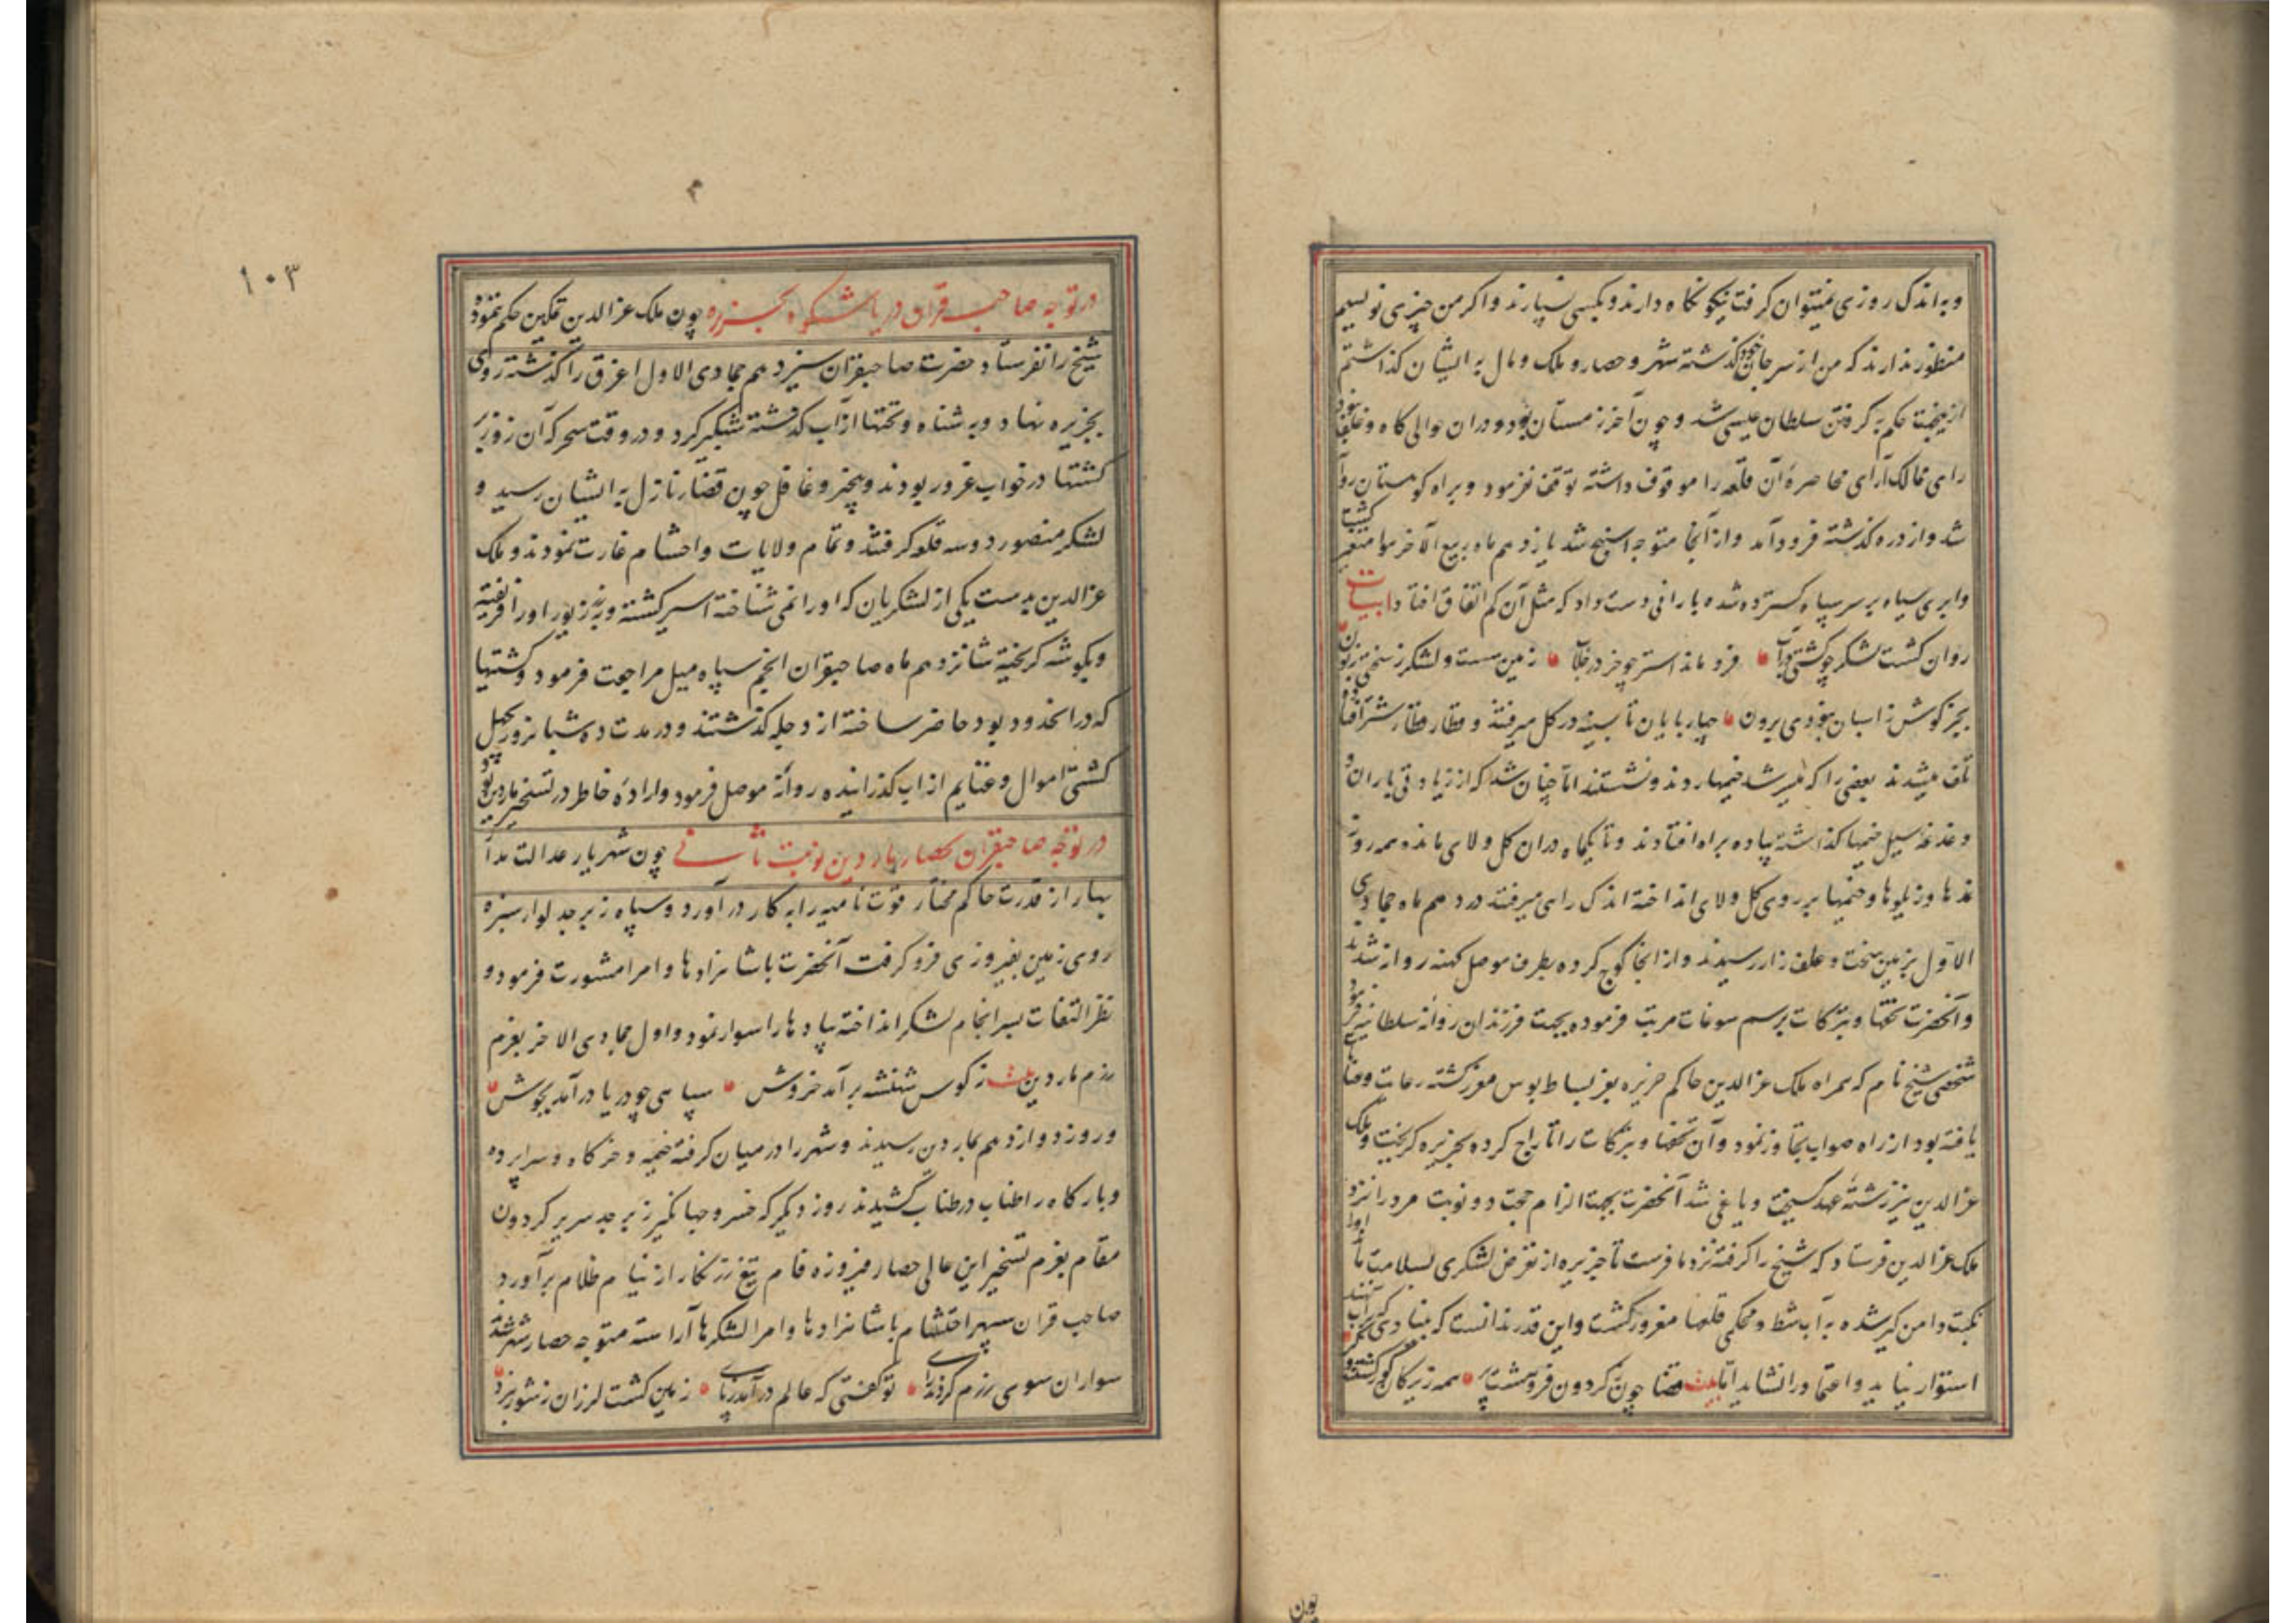 و به اندک روزی نمیتوان گرفت نیکو نگاه دارند و بکسی نسپارند و اگر من چیزی نویسم
منظور ندارند که من از سر جان خود گذشته شهر و حصار و ملک و مال به ایشان گذاشتم
ازینجهت حکم به گرفتن سلطان عیسی شد و چون آخر زمستان بود و در ان حوالی کاه و علف نبود
رای ممالک آرای محاصرهٔ آن قلعه را موقوف داشته توقف نفرمود و براه کوهستان روان
شد و از دره گذشته فرود آمد و از آنجا متوجه شد یازدهم ماه ربیع الآخر هوا متغیر گشت
و ابری سیاه بر سر سپاه گسترده شده بارانی دست داد که مثل آن کم اتفاق افتاد ابیات
روان گشت لشکر چو کشتی در آب فرو ماند استر چو خر در خلاب زمین سست و لشکر ز سختی زبون
بجز گوش ز اسبان نبودی برون چارپایان تا سینه در گل میرفتند و قطار قطار شتر افتاده
تلف میشدند بعضی را که میسر شد خیمها زدند و نشستند اما چنان شد که از زیادتی باران و
دغدغه سیل خیمها گذاشته پیاده براه افتادند و تا یکماه در ان گل و لای مانده همه روز
ندها و زیلوها و خیمها بر روی گل و لای انداخته اندک راهی میرفتند در دهم ماه جمادی
الاول بزمین سخت و علف زار رسیدند و از انجا کوچ کرده بطرف موصل کهنه روانه شدند
و آنحضرت تحفها و تبرکات برسم سوغات مرتب فرموده بجهت فرزندان روانه سلطانیه فرمود
شخصی شیخ نام که همراه ملک عز الدین حاکم جزیره بعز بساط بوس معزز گشته رعایت و عنایت
یافته بود از راه صواب تجاوز نمود و آن تحفها و تبرکات را تاراج کرده بجزیره گریخت و ملک
عز الدین نیز رشتهٔ عهد گسیخت و یاغی شد آنحضرت بجهت الزام حجت دو نوبت مردم را نزد
ملک عز الدین فرستاد که شیخ را گرفته نزد ما فرست تا جزیره از تعرض لشکری بسلامت ماند او را
نکبت دامن گیر شده به آب شط و محکمی قلعها مغرور گشت و این قدر ندانست که بنیادی که آب نهند
استوار نیاید و اعتماد را نشاید اما بیت قضا چون ز گردون فروهشت پر همه زیرکان کور گشتند و کر
چون
۱۰۳
در توجه صاحب قران دریا شکوه بجزیره چون ملک عز الدین تمکین حکم ننمود و
شیخ را نفرستاد حضرت صاحبقران سیزدهم جمادی الاول اغرق را گذشته روی
بجزیره نهاد و به شناه و تختها از آب گذشته شبگیر کرد و در وقت سحر که آن روز
گشتها در خواب غرور بودند و بیخبر و غافل چون قضاء نازل به ایشان رسید و
لشکر منصور دو سه قلعه گرفتند و تمام ولایات و احشام غارت نمودند و ملک
عز الدین بدست یکی از لشکریان که او را نمی شناخته اسیر گشته و به زر و زیور او را فریفته
و بگوشه گریخته شانزدهم ماه صاحبقران انجم سپاه میل مراجعت فرمود و کشتیها
که در انحدود بود حاضر ساخته از دجله گذشتند و در مدت ده شبانروز بچهل
کشتی اموال و غنایم از اب گذرانیده روانهٔ موصل فرمود و ارادهٔ خاطر در تسخیر ماردین بود
در توجه صاحبقران بحصار ماردین نوبت ثانی چون شهریار عدالت مدار
بهار از قدرت حاکم مختار قوت نامیه را به کار در آورد و سپاه زبرجد لوای سبزه
روی زمین بفیروزی فرو گرفت آنحضرت با شاهزادها و امرا مشورت فرمود و
نظر التفات بسرانجام لشکر انداخته پیادها را سوار نمود و اول جمادی الاخر بعزم
رزم ماردین بیت ز کوس شهنشه برآمد خروش سپاهی چو دریا درآمد بجوش
و روز دوازدهم بماردین رسیدند و شهر را در میان گرفته خیمه و خرگاه و سراپرده
و بارگاه را طناب در طناب کشیدند روز دیگر که خسرو جهانگیر زبرجد سریر گردون
مقام بعزم تسخیر این عالی حصار فیروزه فام تیغ زرنگار از نیام ظلام برآورد
صاحب قران سپهر احتشام با شاهزادها و امرا لشکرها آراسته متوجه حصار شهر شدند
سواران سوی رزم کردند رای تو گفتی که عالم درآمد ز پای زمین گشت لرزان ز شور نبرد